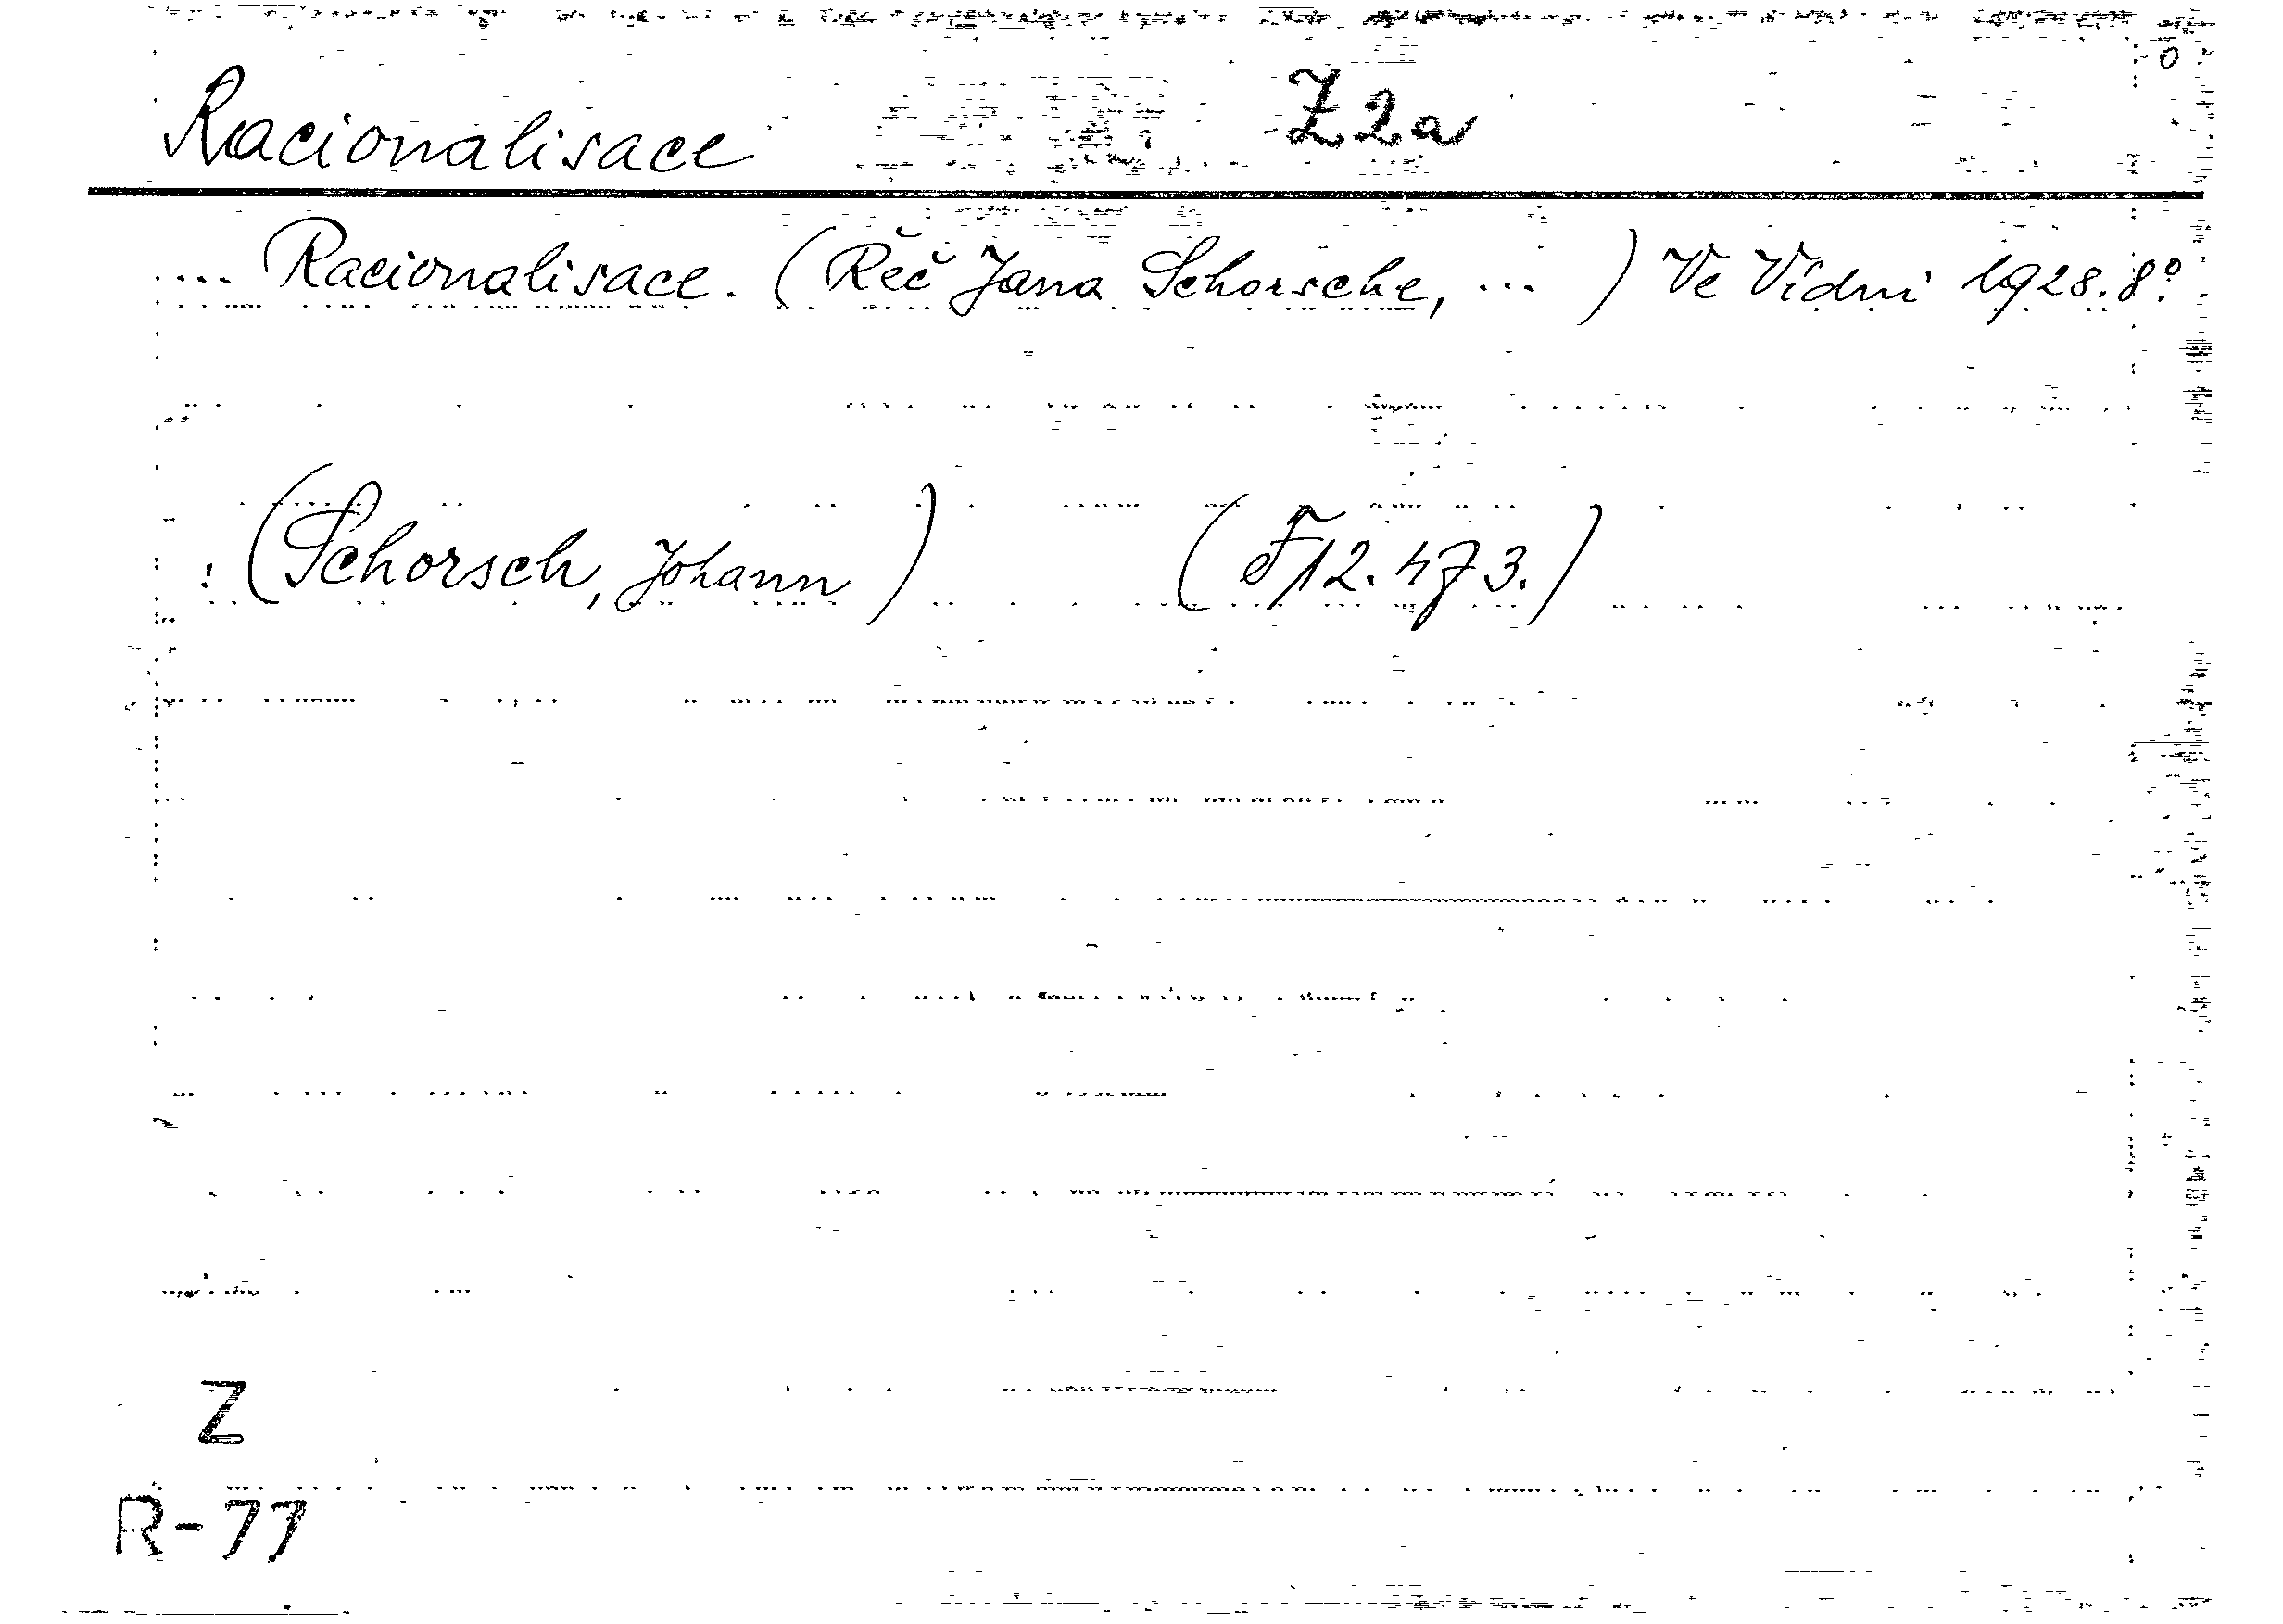 Racionalisace Z2a
.... Racionalisace. (Řeč Jana Schorsche, ... ) Ve Vídni 1928. 8°.
: (Schorsch, Johann) (F12.473.)
Z
R-77